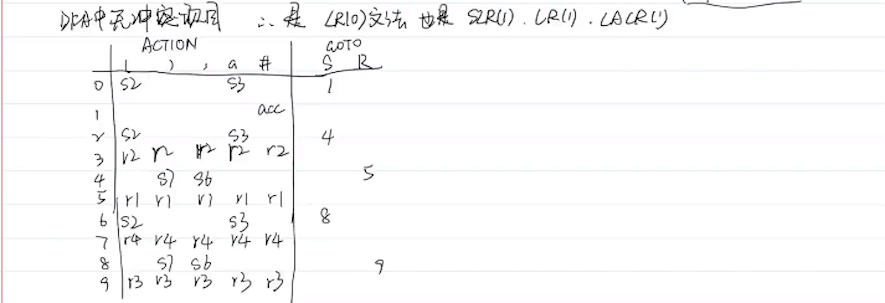 DFA中无冲突项目 ∴ 是 LR(0)文法 也是 SLR(1). LR(1). LALR(1)
ACTION GOTO
( ) , a # S R
0 S2 S3 1
1 acc
2 S2 S3 4
3 r2 r2 r2 r2 r2
4 S7 S6 5
5 r1 r1 r1 r1 r1
6 S2 S3 8
7 r4 r4 r4 r4 r4
8 S7 S6 9
9 r3 r3 r3 r3 r3